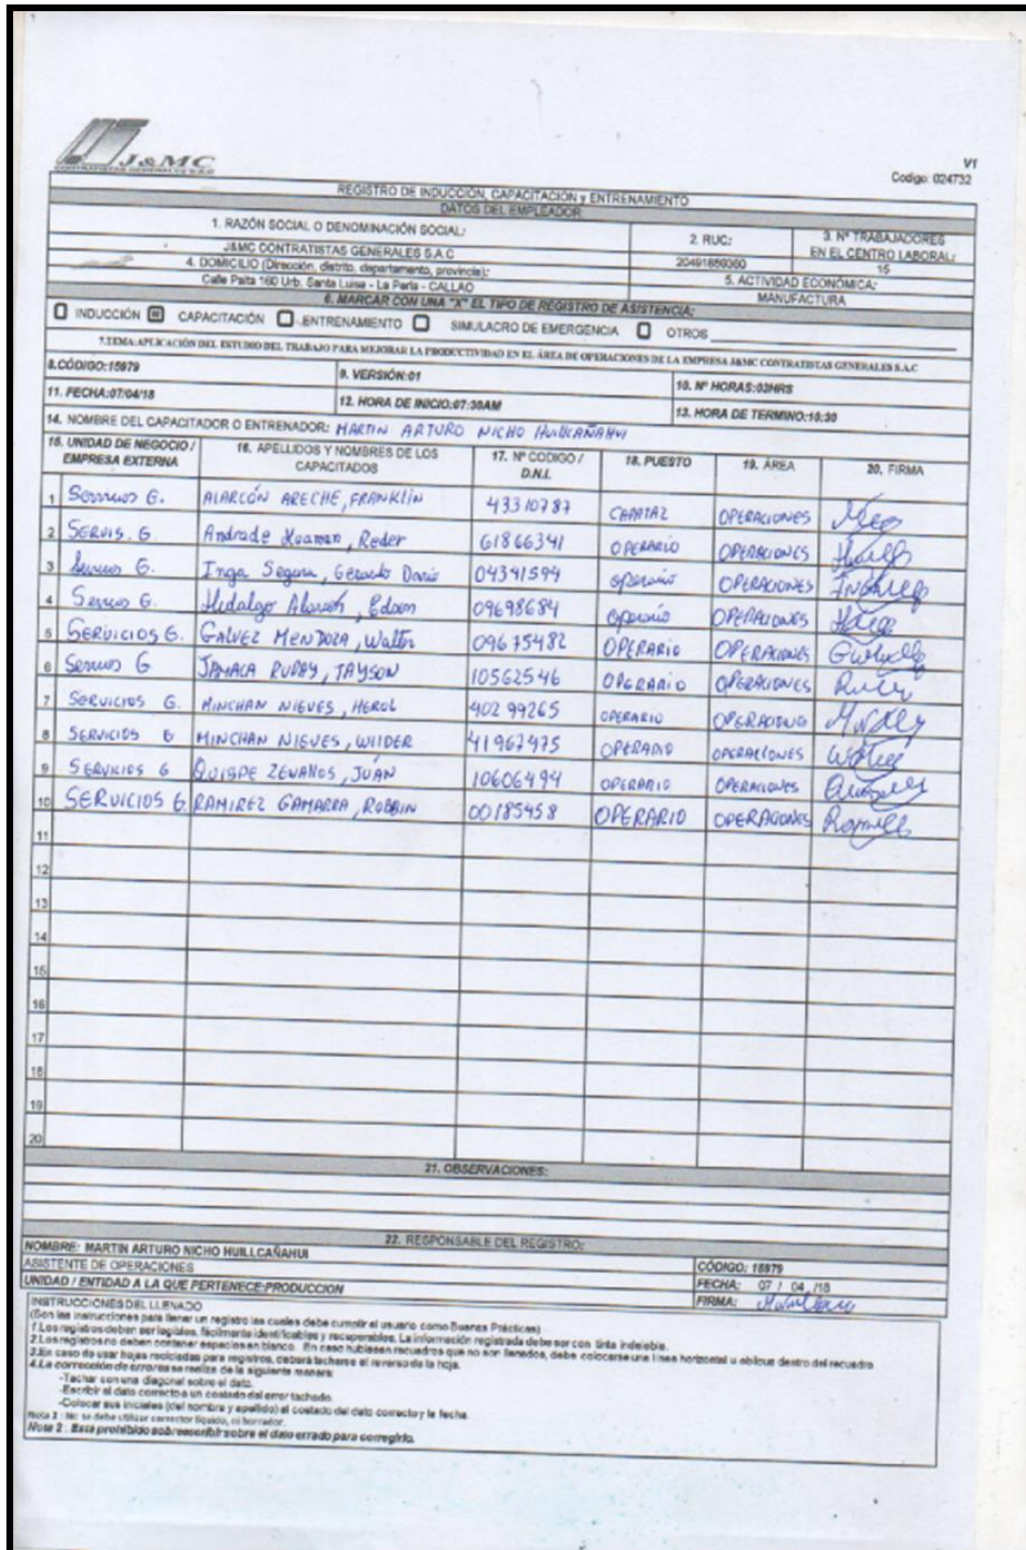 J&MC
CONTRATISTAS GENERALES S.A.C
V1
Codigo: 024732
REGISTRO DE INDUCCIÓN, CAPACITACIÓN y ENTRENAMIENTO
DATOS DEL EMPLEADOR
1. RAZÓN SOCIAL O DENOMINACIÓN SOCIAL: 2. RUC: 3. Nº TRABAJADORES EN EL CENTRO LABORAL:
J&MC CONTRATISTAS GENERALES S.A.C 20491859360 15
4. DOMICILIO (Dirección, distrito, departamento, provincia): 5. ACTIVIDAD ECONÓMICA:
Calle Paita 160 Urb. Santa Luisa - La Perla - CALLAO MANUFACTURA
6. MARCAR CON UNA "X" EL TIPO DE REGISTRO DE ASISTENCIA:
INDUCCIÓN CAPACITACIÓN ENTRENAMIENTO SIMULACRO DE EMERGENCIA OTROS
7.TEMA:APLICACIÓN DEL ESTUDIO DEL TRABAJO PARA MEJORAR LA PRODUCTIVIDAD EN EL ÁREA DE OPERACIONES DE LA EMPRESA J&MC CONTRATISTAS GENERALES S.A.C
8.CÓDIGO:15979 9. VERSIÓN:01 10. Nº HORAS:03HRS
11. FECHA:07/04/18 12. HORA DE INICIO:07:30AM 13. HORA DE TERMINO:10:30
14. NOMBRE DEL CAPACITADOR O ENTRENADOR: MARTIN ARTURO NICHO HUILLCAÑAHUI
15. UNIDAD DE NEGOCIO / EMPRESA EXTERNA 16. APELLIDOS Y NOMBRES DE LOS CAPACITADOS 17. Nº CODIGO / D.N.I. 18. PUESTO 19. ÁREA 20. FIRMA
1 Servicios G. ALARCÓN ARECHE, FRANKLIN 43310787 CAPATAZ OPERACIONES
2 SERVIS. G. Andrade Huaman, Reder 61866341 OPERARIO OPERACIONES
3 Servicios G. Inga Segura, Gerardo Dario 04341594 operario OPERACIONES
4 Servicios G. Hidalgo Alarcón, Edson 09698684 operario OPERACIONES
5 SERVICIOS G. GALVEZ MENDOZA, Walter 09675482 OPERARIO OPERACIONES
6 Servicios G JAMACA RUDDY, TAYSON 10562546 OPERARIO OPERACIONES
7 SERVICIOS G. MINCHAN NIEVES, HEROL 40299265 OPERARIO OPERACIONES
8 SERVICIOS G MINCHAN NIEVES, WILDER 41967475 OPERARIO OPERACIONES
9 SERVICIOS G QUISPE ZEVALLOS, JUAN 10606494 OPERARIO OPERACIONES
10 SERVICIOS G. RAMIREZ GAMARRA, ROBBIN 00185458 OPERARIO OPERACIONES
11
12
13
14
15
16
17
18
19
20
21. OBSERVACIONES:
22. RESPONSABLE DEL REGISTRO:
NOMBRE: MARTIN ARTURO NICHO HUILLCAÑAHUI CÓDIGO: 15979
ASISTENTE DE OPERACIONES FECHA: 07 / 04 /18
UNIDAD / ENTIDAD A LA QUE PERTENECE:PRODUCCION FIRMA:
INSTRUCCIONES DEL LLENADO
(Son las instrucciones para llenar un registro las cuales debe cumplir el usuario como Buenas Prácticas)
1.Los registros deben ser legibles, fácilmente identificables y recuperables. La información registrada debe ser con tinta indeleble.
2.Los registros no deben contener espacios en blanco. En caso hubiesen recuadros que no son llenados, debe colocarse una línea horizontal u oblicua dentro del recuadro
3.En caso de usar hojas recicladas para registros, deberá tacharse el reverso de la hoja.
4.La corrección de errores se realiza de la siguiente manera:
-Tachar con una diagonal sobre el dato.
-Escribir el dato correcto a un costado del error tachado.
-Colocar sus iniciales (del nombre y apellido) al costado del dato correcto y la fecha.
Nota 1 : No se debe utilizar corrector líquido, ni borrador.
Nota 2 : Esta prohibido sobreescribir sobre el dato errado para corregirlo.